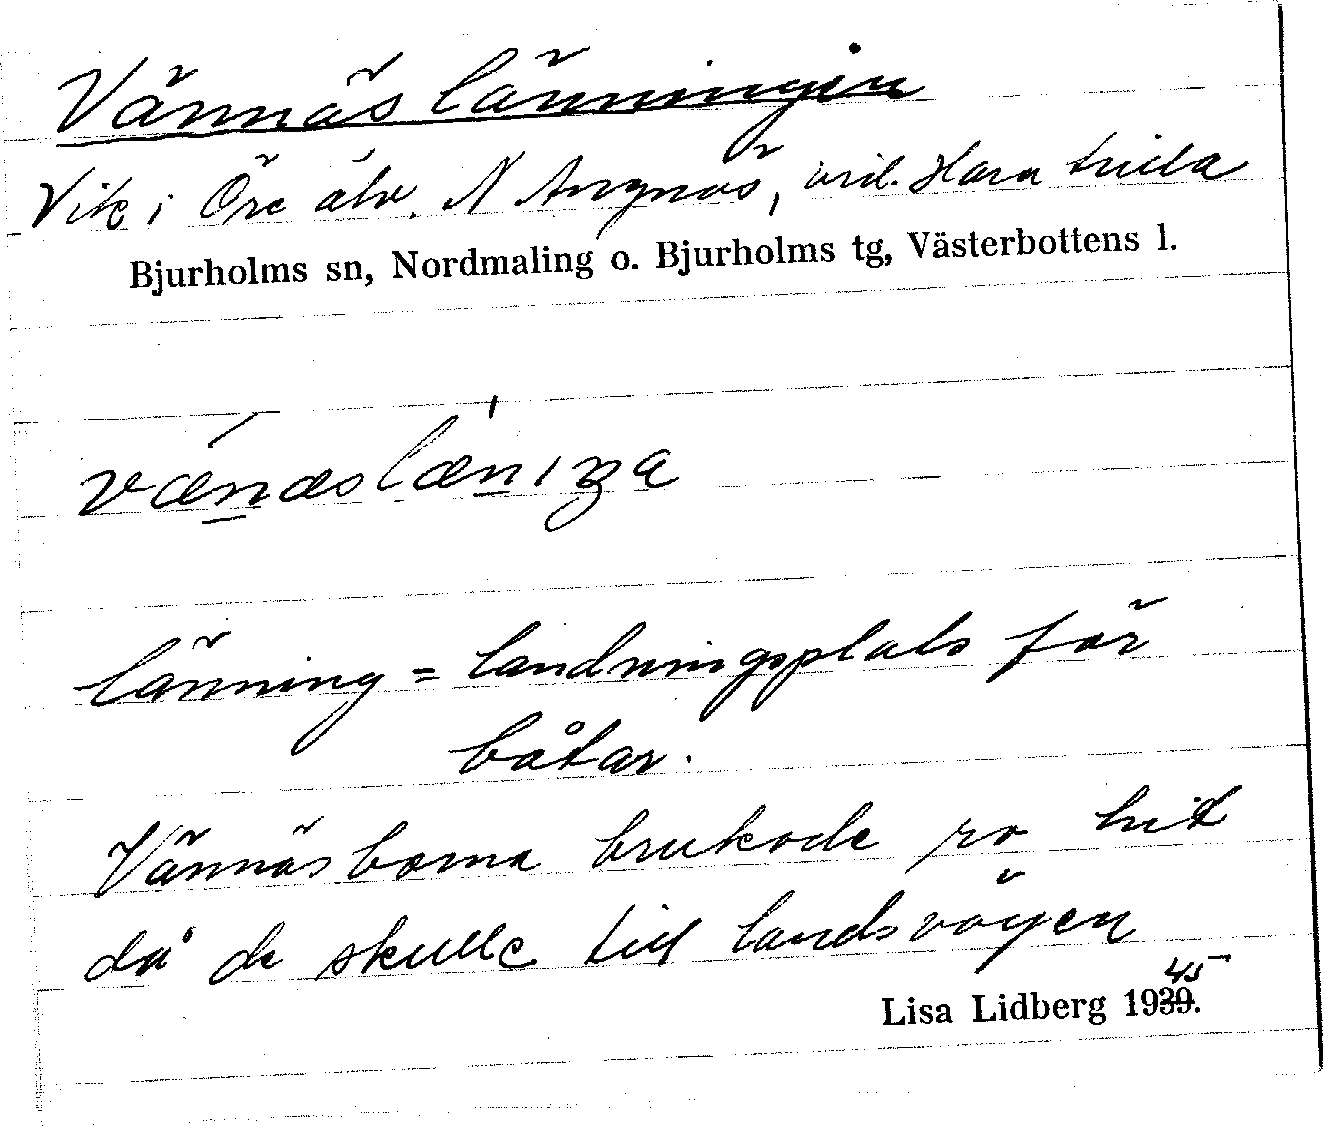 Vännäslänningen
Vik i Öre älv. N Angnäs, vid. Hara tvila
Bjurholms sn, Nordmaling o. Bjurholms tg, Västerbottens l.
vænæslæniŋa
länning = landningsplats för
båtar.
Vännäsborna brukade ro hit
då de skulle till landsvägen
45
Lisa Lidberg 1939.